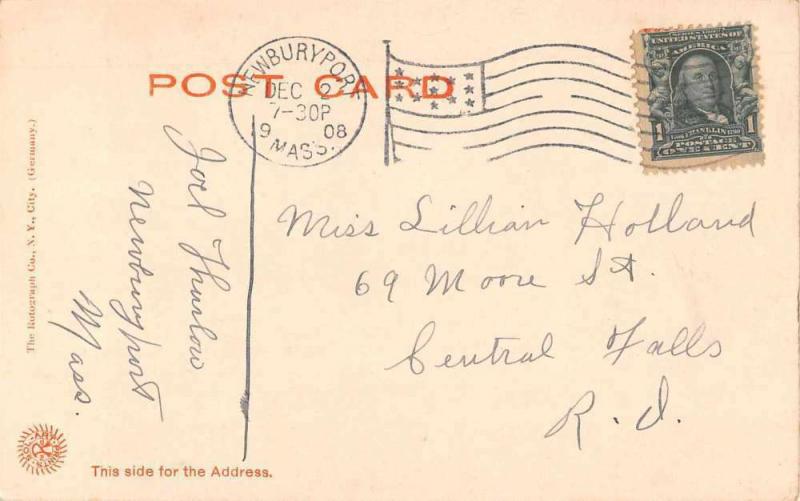 POST CARD
NEWBURYPORT
DEC 2
7-30P
1908
MASS.
UNITED STATES OF
AMERICA
1 1
FRANKLIN
POSTAGE
ONE CENT
Miss Lillian Holland
69 Moore St.
Central Falls
R. I.
Joel Thurlow
Newburyport
Mass.
The Rotograph Co., N. Y., City. (Germany.)
This side for the Address.